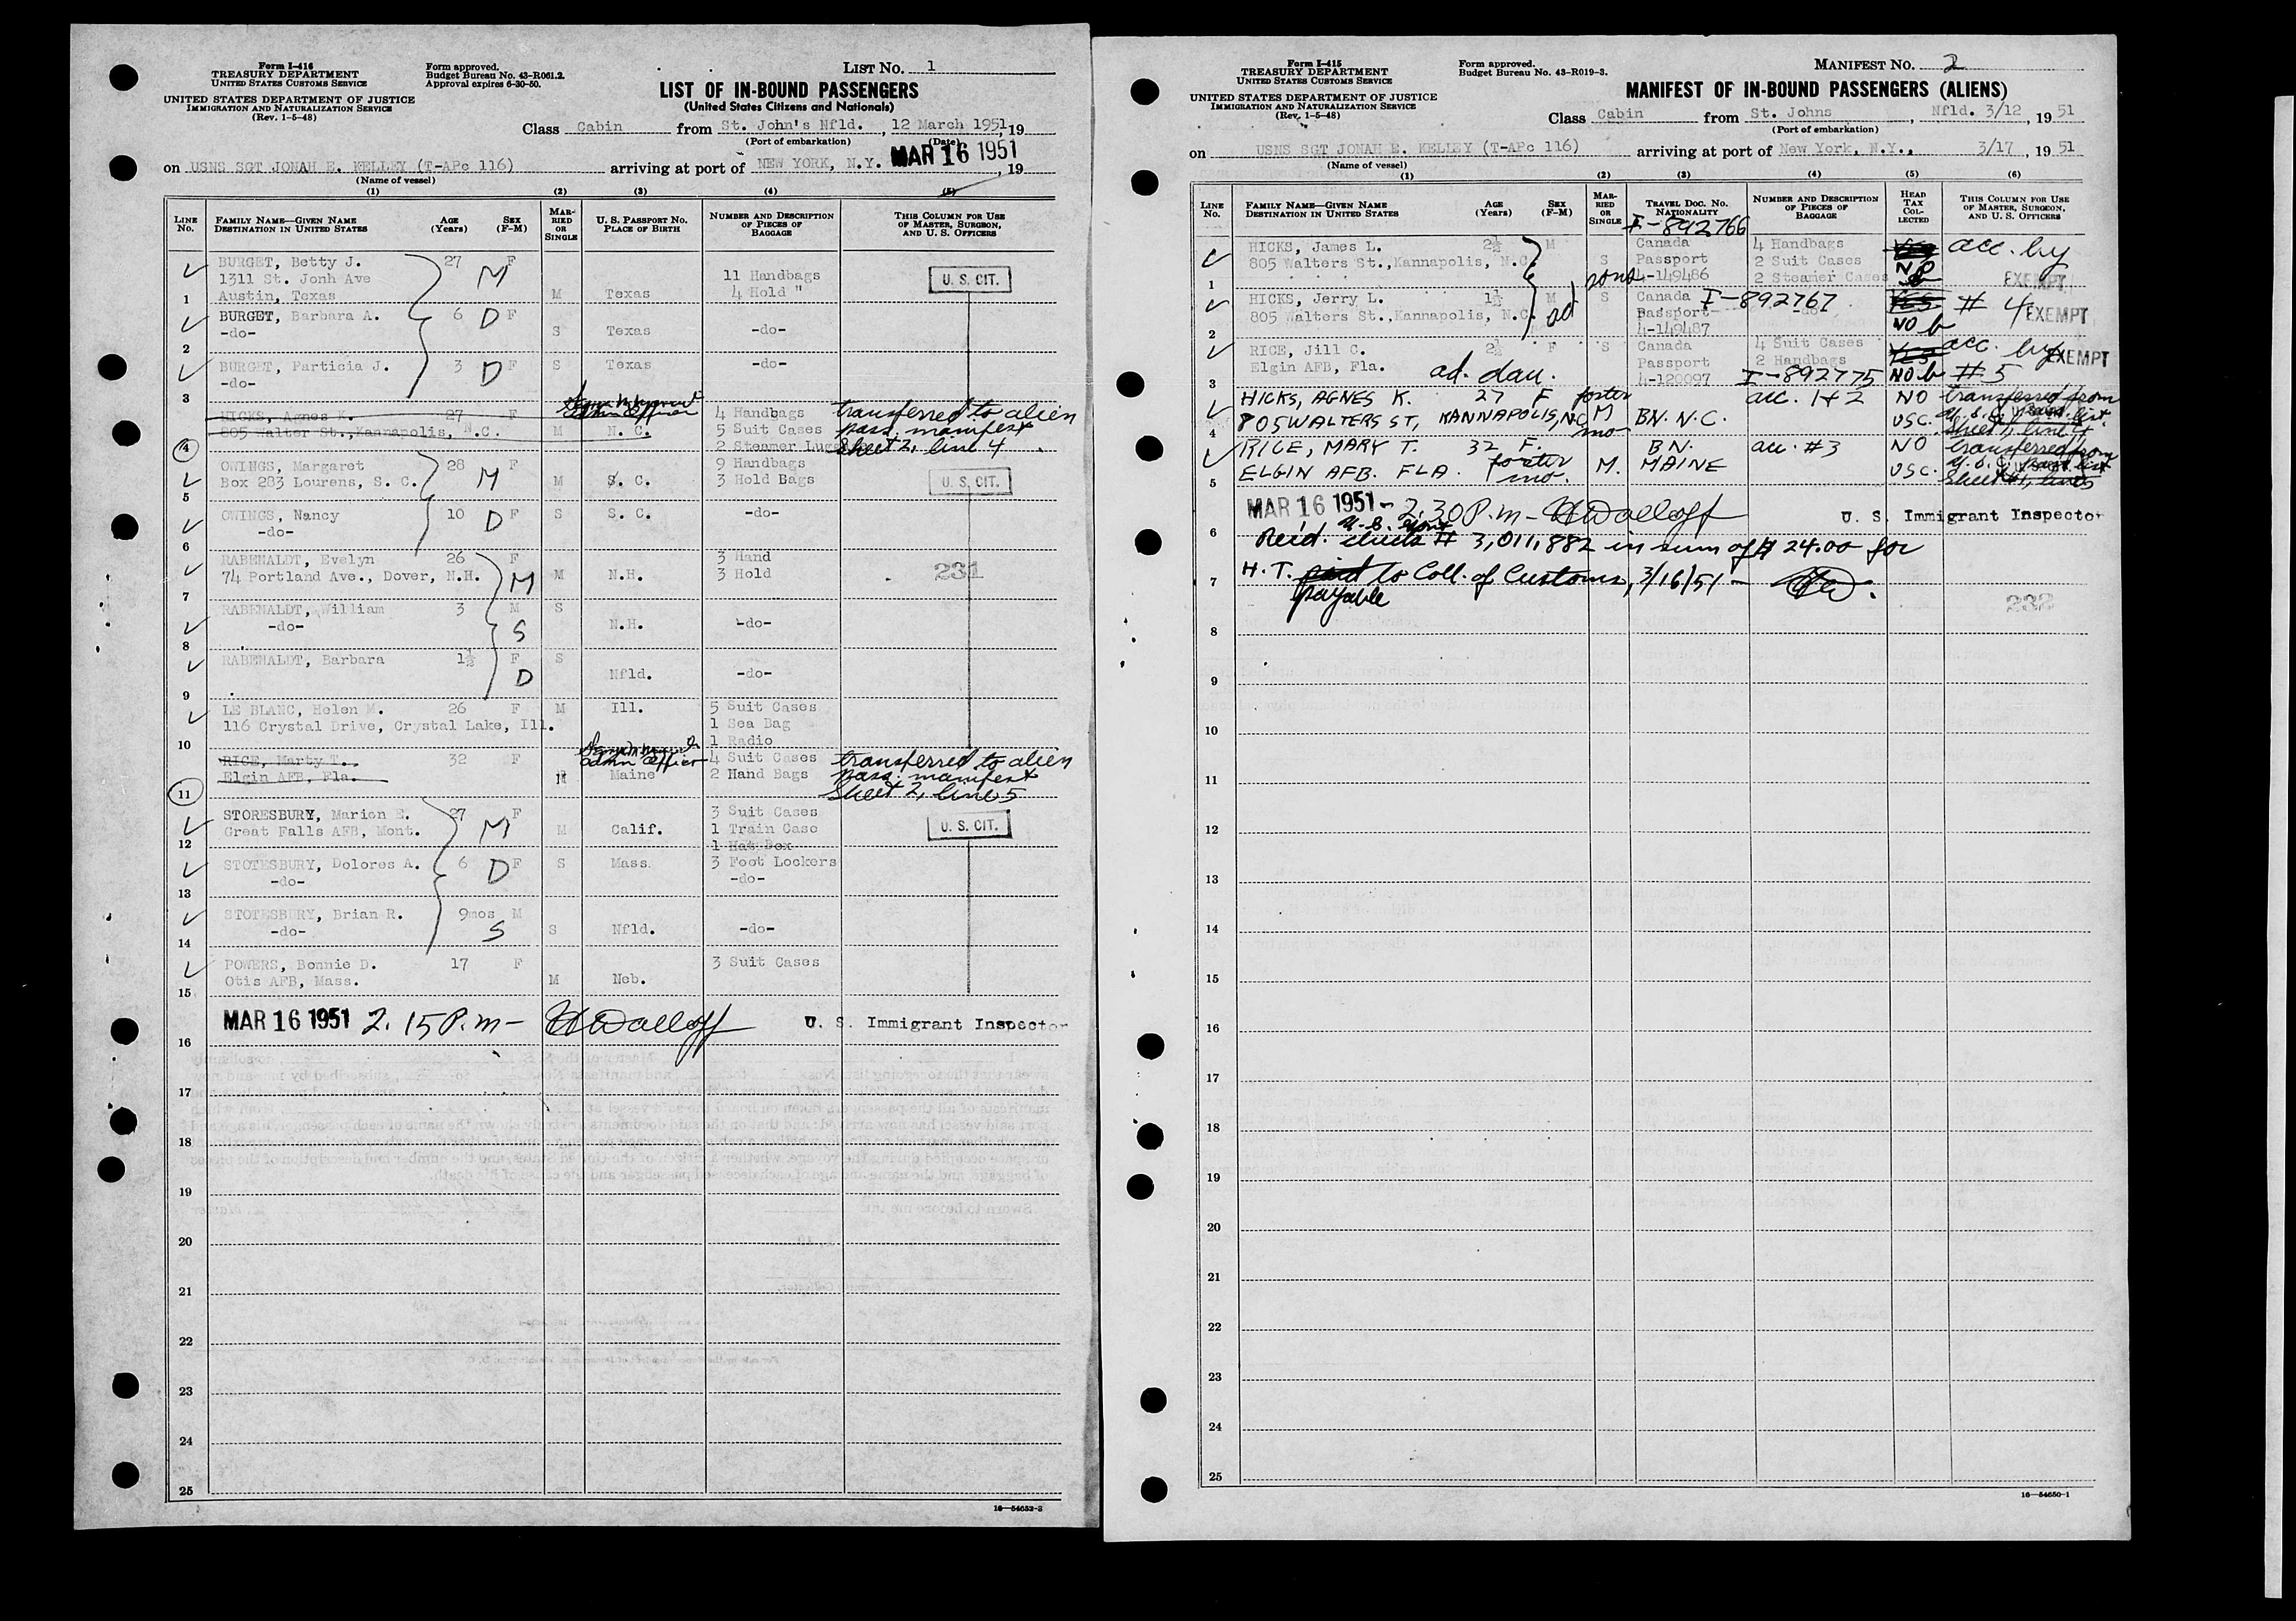 Form I-416
TREASURY DEPARTMENT
UNITED STATES CUSTOMS SERVICE
UNITED STATES DEPARTMENT OF JUSTICE
IMMIGRATION AND NATURALIZATION SERVICE
(Rev. 1-5-48)
Form approved.
Budget Bureau No. 43-R061.2.
Approval expires 6-30-50.
LIST No. 1
LIST OF IN-BOUND PASSENGERS
(United States Citizens and Nationals)
Class Cabin from St. John's Nfld. , 12 March 1951, 19
(Port of embarkation) (Date)
on USNS SGT JONAH E. KELLEY (T-APc 116) arriving at port of NEW YORK, N.Y. MAR 16 1951 , 19
(Name of vessel)
(1) (2) (3) (4) (5)
LINE No. FAMILY NAME—GIVEN NAME DESTINATION IN UNITED STATES AGE (Years) SEX (F-M) MARRIED OR SINGLE U. S. PASSPORT No. PLACE OF BIRTH NUMBER AND DESCRIPTION OF PIECES OF BAGGAGE THIS COLUMN FOR USE OF MASTER, SURGEON, AND U. S. OFFICERS
BURGET, Betty J. 27 F M
1311 St. Jonh Ave 11 Handbags U. S. CIT.
1 Austin, Texas M Texas 4 Hold "
BURGET, Barbara A. 6 D F
-do- S Texas -do-
2
BURGET, Particia J. 3 D F S Texas -do-
-do-
3
HICKS, Agnes K. 27 F Admin Officer 4 Handbags transferred to alien
805 Walter St., Kannapolis, N.C. M N. C. 5 Suit Cases pass. manifest
4 2 Steamer Lug sheet 2, line 4
OWINGS, Margaret 28 F 9 Handbags
Box 283 Lourens, S. C. M M S. C. 3 Hold Bags U. S. CIT.
5
OWINGS, Nancy 10 D F S S. C. -do-
-do-
6
RABENALDT, Evelyn 26 F 3 Hand
74 Portland Ave., Dover, N.H. M M N.H. 3 Hold 231
7
RABENALDT, William 3 M S
-do- S N.H. -do-
8
RABENALDT, Barbara 1½ F S
D Nfld. -do-
9
LE BLANC, Helen M. 26 F M Ill. 5 Suit Cases
116 Crystal Drive, Crystal Lake, Ill. 1 Sea Bag
10 1 Radio
RICE, Marty T. 32 F Admin Officer 4 Suit Cases transferred to alien
Elgin AFB, Fla. M Maine 2 Hand Bags pass. manifest
11 Sheet 2, line 5
STORESBURY, Marion E. 27 F 3 Suit Cases
Great Falls AFB, Mont. M M Calif. 1 Train Case U. S. CIT.
12 1 Hat Box
STOTESBURY, Dolores A. 6 D F S Mass. 3 Foot Lockers
-do- -do-
13
STOTESBURY, Brian R. 9mos M
-do- S S Nfld. -do-
14
POWERS, Bonnie D. 17 F 3 Suit Cases
Otis AFB, Mass. M Neb.
15
MAR 16 1951 2.15 P.m- U. S. Immigrant Inspector
16
17
18
19
20
21
22
23
24
25
16—54652-3
Form I-415
TREASURY DEPARTMENT
UNITED STATES CUSTOMS SERVICE
UNITED STATES DEPARTMENT OF JUSTICE
IMMIGRATION AND NATURALIZATION SERVICE
(Rev. 1-5-48)
Form approved.
Budget Bureau No. 43-R019-3.
MANIFEST No. 2
MANIFEST OF IN-BOUND PASSENGERS (ALIENS)
Class Cabin from St. Johns , Nfld. 3/12 , 19 51
(Port of embarkation)
on USNS SGT JONAH E. KELLEY (T-APc 116) arriving at port of New York, N.Y., 3/17 , 19 51
(Name of vessel)
(1) (2) (3) (4) (5) (6)
LINE No. FAMILY NAME—GIVEN NAME DESTINATION IN UNITED STATES AGE (Years) SEX (F-M) MARRIED OR SINGLE TRAVEL DOC. No. NATIONALITY NUMBER AND DESCRIPTION OF PIECES OF BAGGAGE HEAD TAX COLLECTED THIS COLUMN FOR USE OF MASTER, SURGEON, AND U. S. OFFICERS
I-892766
HICKS, James L. 2½ M Canada 4 Handbags YES acc. by
805 Walters St.,Kannapolis, N.C. S Passport 2 Suit Cases NO
1 sons 4-149486 2 Steamer Cases EXEMPT
HICKS, Jerry L. 1½ M S Canada I-892767 YES # 4 EXEMPT
805 Walters St.,Kannapolis, N.C. ad Passport -do- NO
2 4-149487
RICE, Jill C. 2½ F S Canada 4 Suit Cases YES acc. by EXEMPT
Elgin AFB, Fla. ad. dau. Passport 2 Handbags
3 4-120097 I-892775 NO #5
HICKS, AGNES K. 27 F foster acc. 1+2 NO transferred from
805 WALTERS ST, KANNAPOLIS, NC M BN. N.C. USC. U.S.C. pass. list.
4 mo Sheet 1, line 4
RICE, MARY T. 32 F. BN. acc. #3 NO transferred from
ELGIN AFB. FLA. foster mo. M. MAINE USC. U.S.C. pass. list
5
MAR 16 1951 - 2.30 P.m- U. S. Immigrant Inspector
6 Rec'd. # 3,011,882 in sum of $ 24.00 for
7 H. T. paid to Coll. of Customs, 3/16/51 -
payable
232
8
9
10
11
12
13
14
15
16
17
18
19
20
21
22
23
24
25
16—54650-1